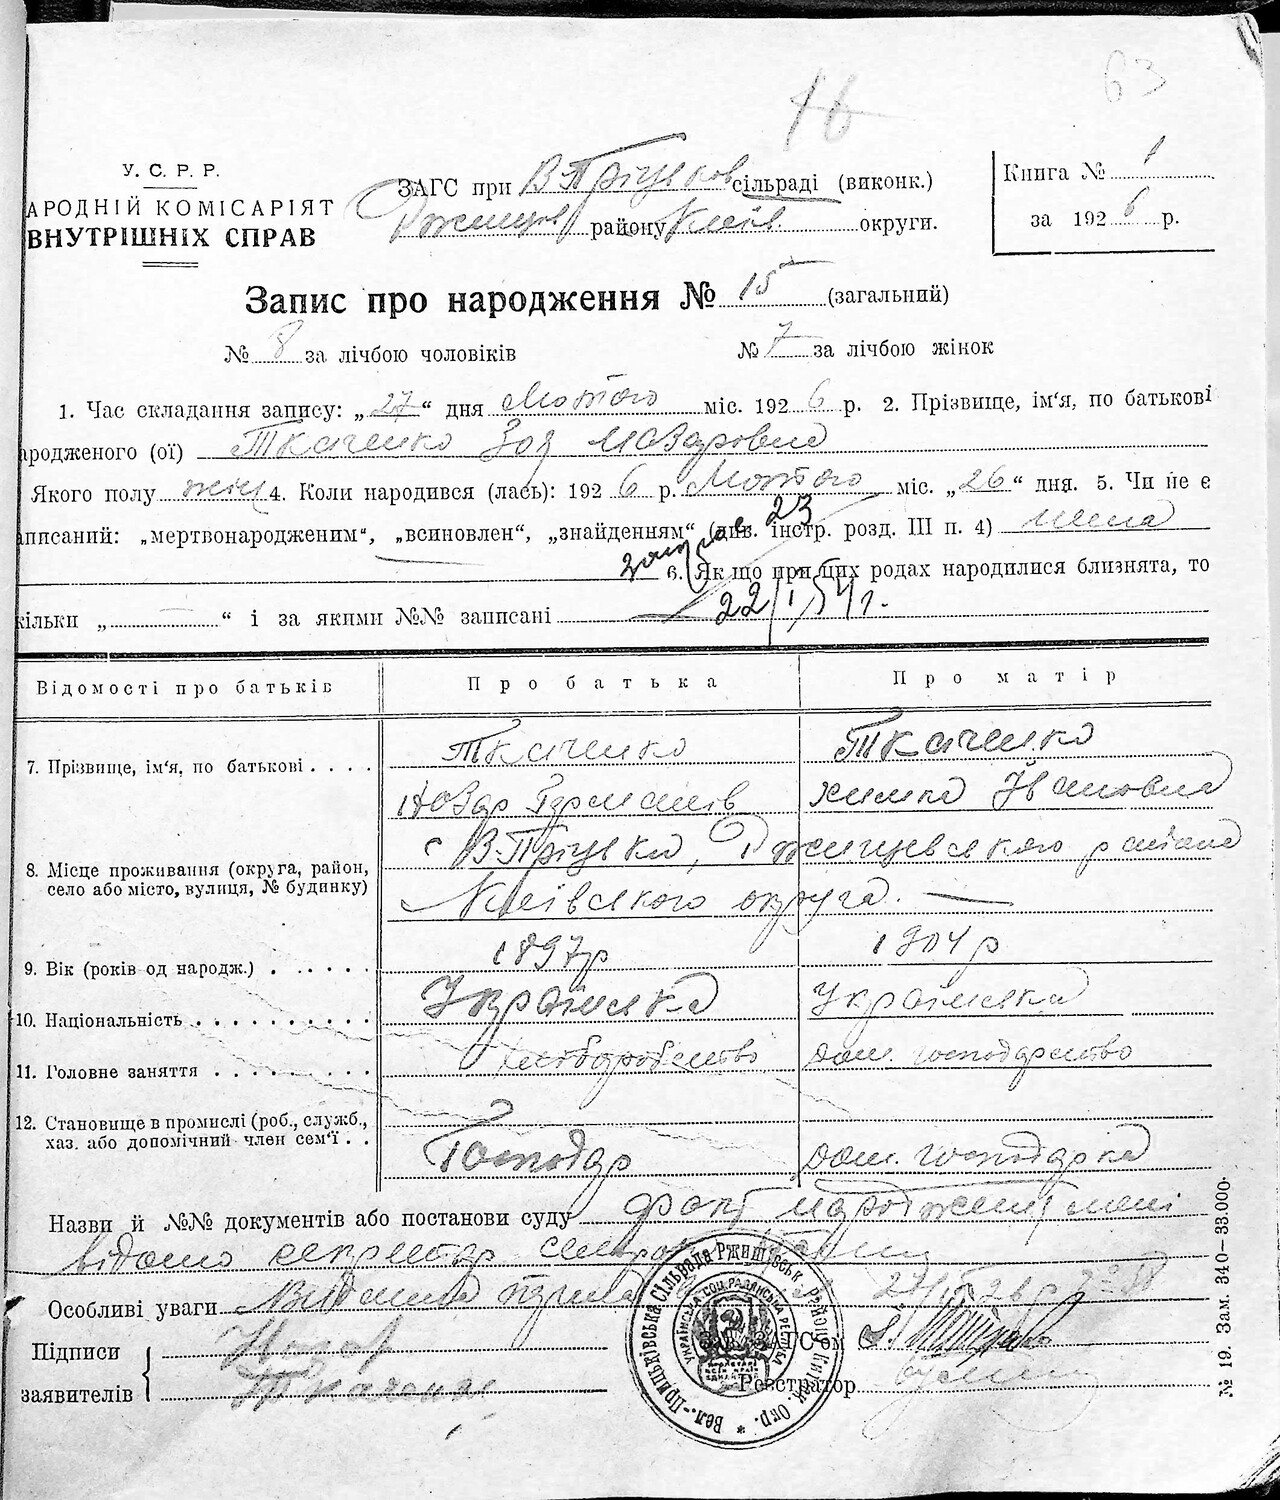 63
16
У. С. Р. Р.
АРОДНІЙ КОМІСАРІЯТ
ВНУТРІШНІХ СПРАВ
ЗАГС при В Пріцьков сільраді (виконк.)
Ржищев району Київ. округи.
Книга № 1
за 1926 р.
Запис про народження № 15 (загальний)
№ 8 за лічбою чоловіків № 7 за лічбою жінок
1. Час складання запису: „27“ дня Лютого міс. 1926 р. 2. Прізвище, ім'я, по батькові
ародженого (ої) Ткаченко Зоя Назаровна
Якого полу жін 4. Коли народився (лась): 1926 р. Лютого міс. „26“ дня. 5. Чи не є
аписаний: „мертвонародженим“, „всиновлен“, „знайденням“ (див. інстр. розд. III п. 4) нема
23
6. Якщо при цих родах народилися близнята, то
кільки „ “ і за якими №№ записані
22/I 54 г.
Відомості про батьків Про батька Про матір
7. Прізвище, ім'я, по батькові . . . . Ткаченко Ткаченко
Назар Германів Химка Івановна
8. Місце проживання (округа, район, село або місто, вулиця, № будинку) с В-Пріцьки, Ржищевського района
Київського округа. —
9. Вік (років од народж.) . . . . . . 1897 р 1904 р
10. Національність . . . . . . . . . . Українська Українська
11. Головне заняття . . . . . . . . . Хліборобство дом. господарство
12. Становище в промислі (роб., служб., хаз. або допомічний член сем'ї . . Господар дом. господарка
Назви й №№ документів або постанови суду факт народження мені
відомо секретар
Особливі уваги Видана 27/II 26 р
Підписи заявителів Назар
Ткаченко
Зав. ЗАГСом
Реєстратор
Вел.-Прицьківська сільрада Ржищівськ. району Київськ. Окр. *
Українська Соц. Радянська Республ.
№ 19. Зам. 340—33.000.